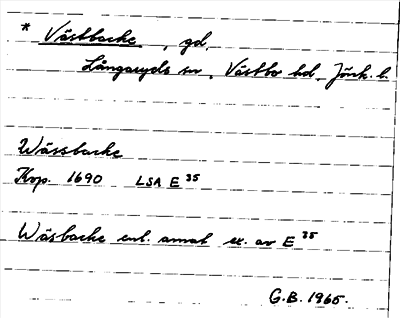 * Västbacke, gd,
Långaryds sn, Västbo hd, Jönk. l.
Wässbacke
Kop. 1690 LSA E 35
Wäsbacke enl. annat ex. av E 35
G.B. 1965.